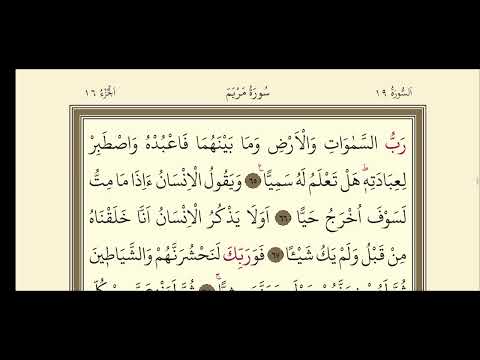 السورة ١٩
سورة مريم
الجزء ١٦
رَبُّ السَّمٰوَاتِ وَالْاَرْضِ وَمَا بَيْنَهُمَا فَاعْبُدْهُ وَاصْطَبِرْ
لِعِبَادَتِهٖۜ هَلْ تَعْلَمُ لَهُ سَمِيًّا۟ ﴿٦٥﴾ وَيَقُولُ الْاِنْسَانُ ءَاِذَا مَا مِتُّ
لَسَوْفَ اُخْرَجُ حَيًّا ﴿٦٦﴾ اَوَلَا يَذْكُرُ الْاِنْسَانُ اَنَّا خَلَقْنَاهُ
مِنْ قَبْلُ وَلَمْ يَكُ شَيْـًٔا ﴿٦٧﴾ فَوَرَبِّكَ لَنَحْشُرَنَّهُمْ وَالشَّيَاطٖينَ